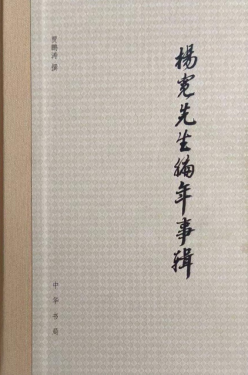 楊寬先生編年事輯
賈鵬濤 撰
中華書局